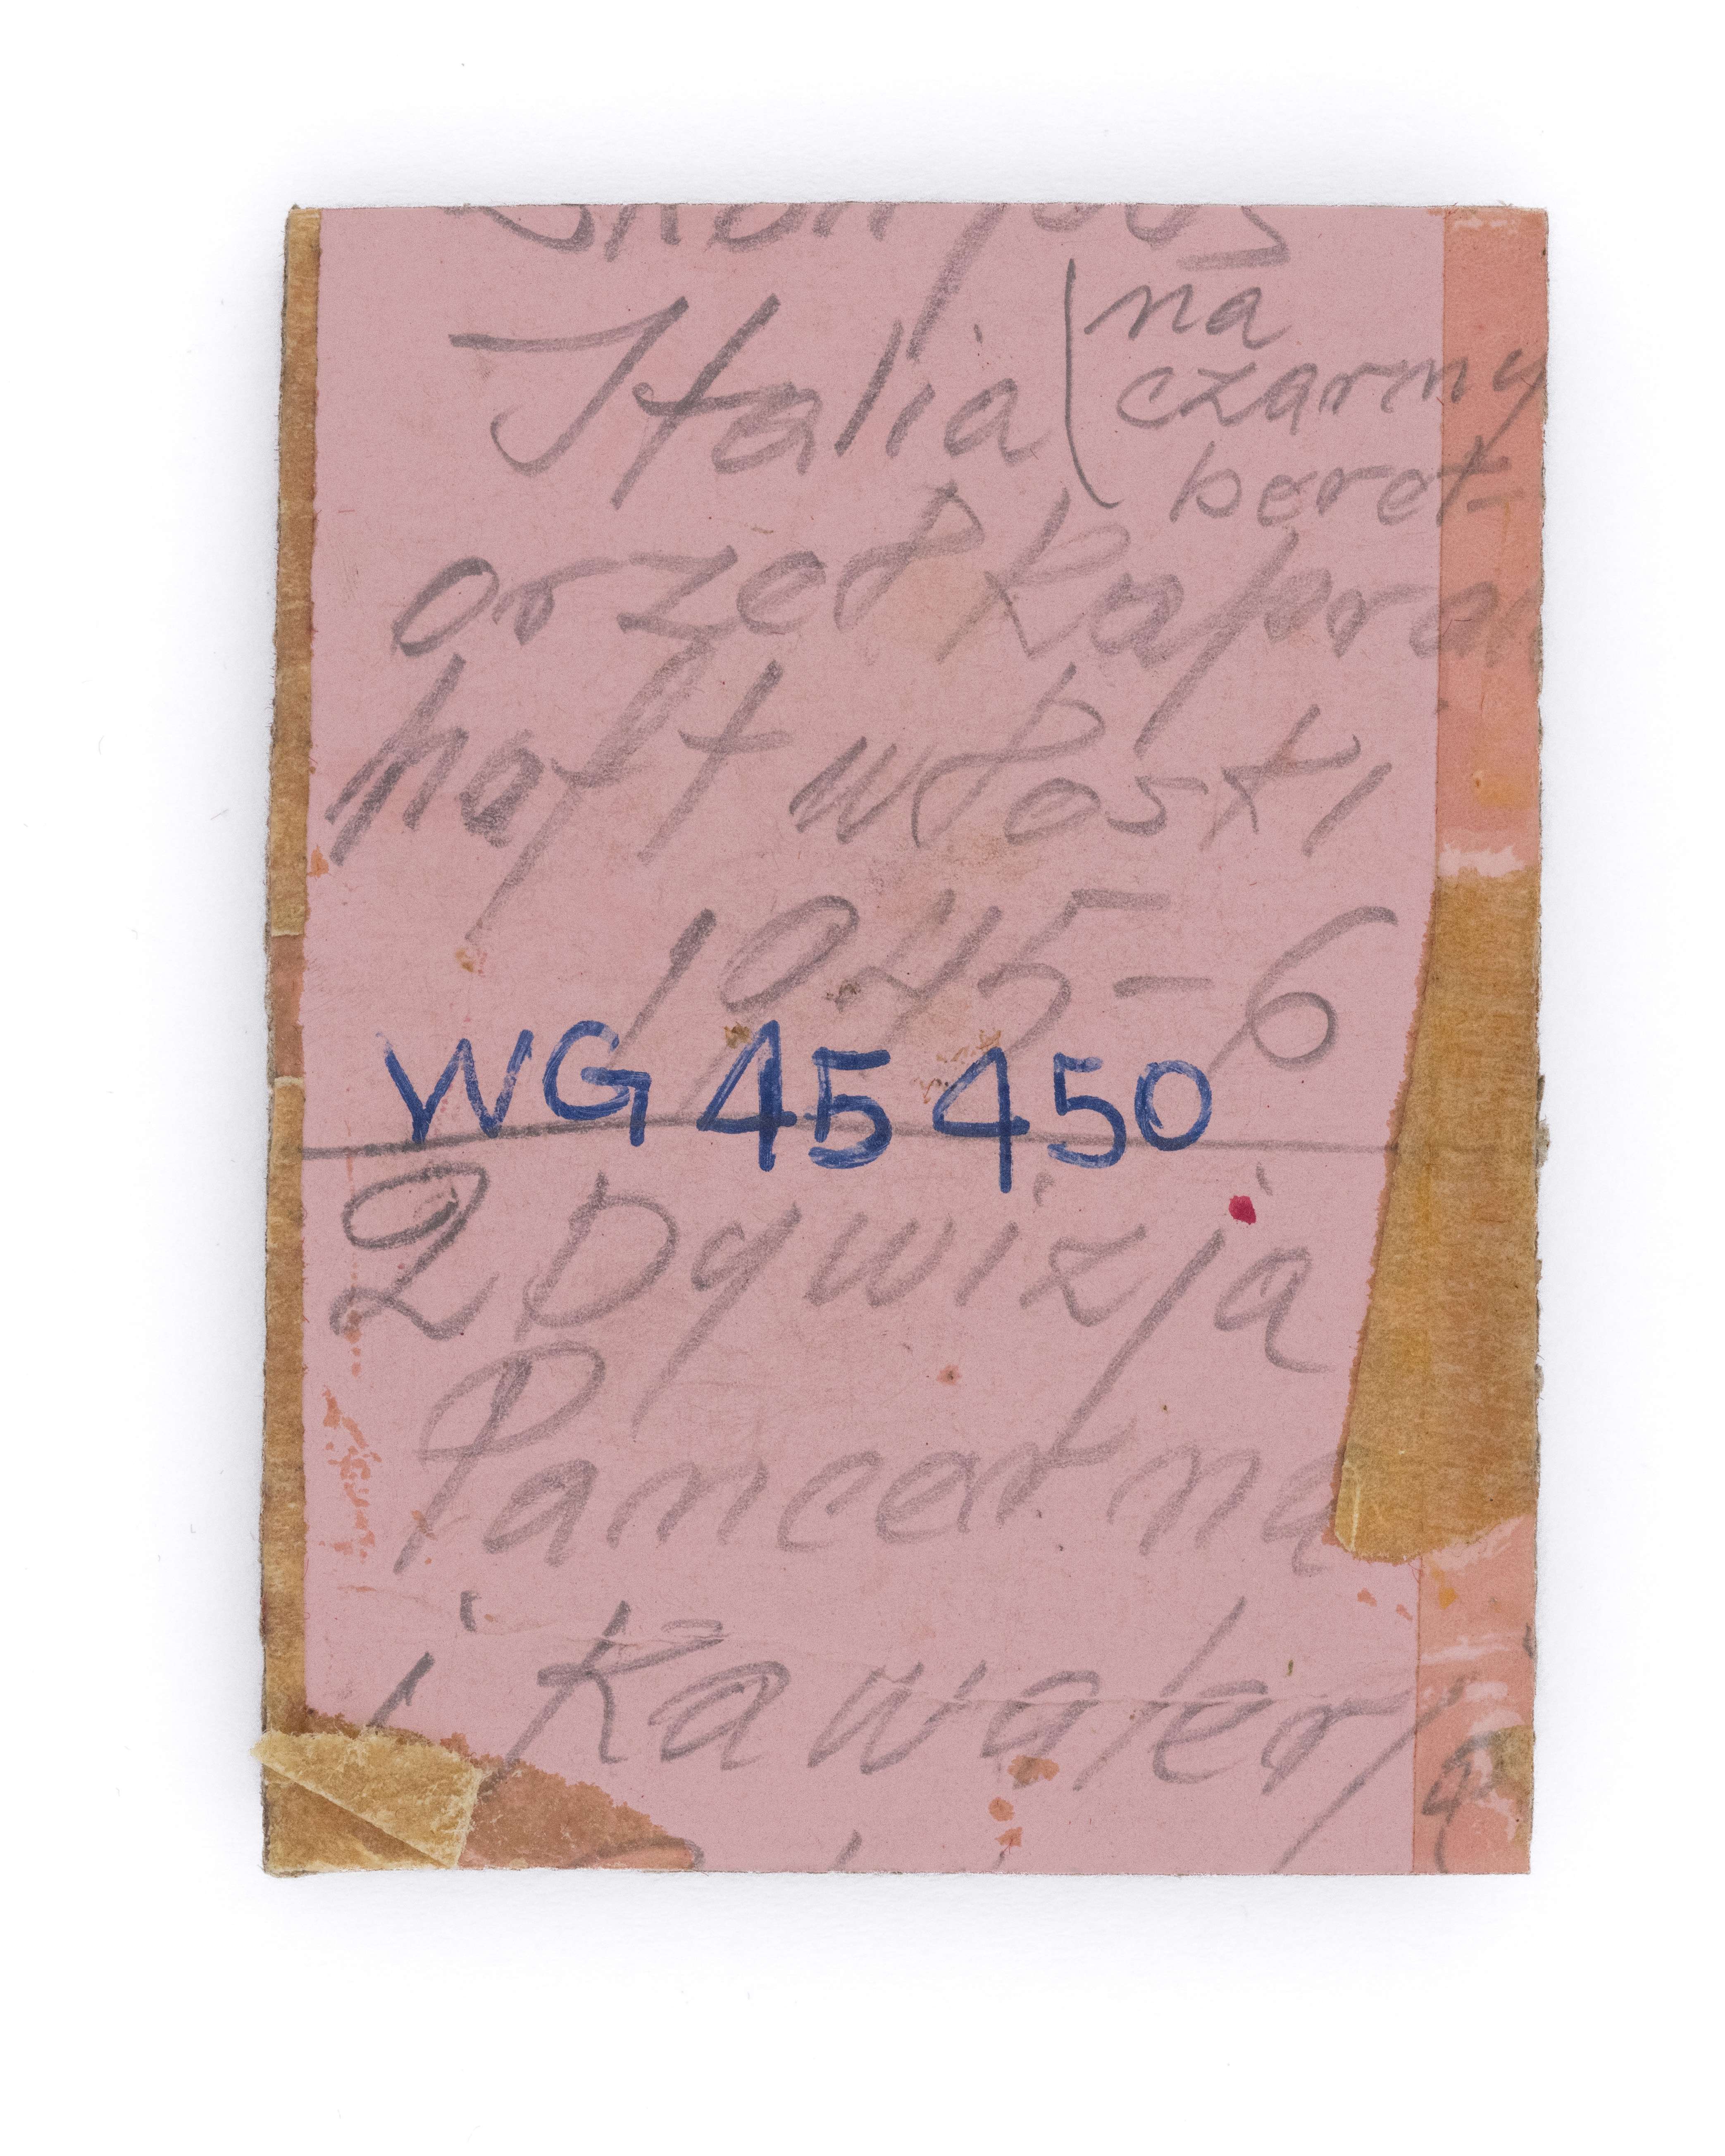 Italia (na
czarny
beret
orzeł Kapral
haft włoski
1945-6
WG 45 450
2 Dywizja
Pancerna
i Kawaler